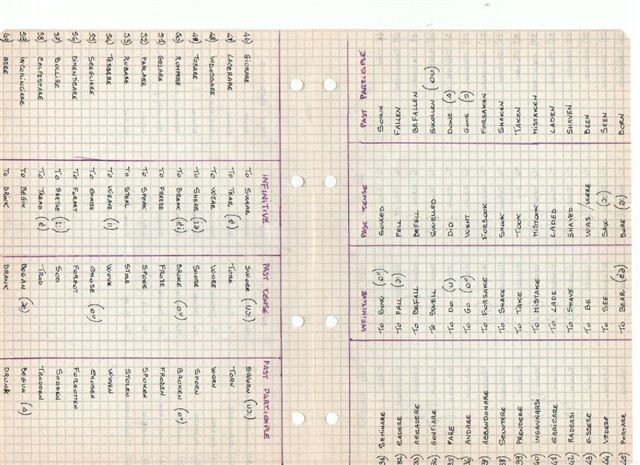 INFINITIVE PAST TENSE PAST PARTICIPLE
31) SEMINARE TO SOW SOWED SOWN
32) CADERE TO FALL FELL FALLEN
33) ACCADERE TO BEFALL BEFELL BEFALLEN
34) GONFIARE TO SWELL SWELLED SWOLLEN (OU)
35) FARE TO DO (U) DID DONE (Λ)
36) ANDARE TO GO WENT GONE (ɔ)
37) ABBANDONARE TO FORSAKE FORSOOK FORSAKEN
38) SCUOTERE TO SHAKE SHOOK SHAKEN
39) PRENDERE TO TAKE TOOK TAKEN
40) INGANNARSI TO MISTAKE MISTOOK MISTAKEN
41) CARICARE TO LADE LADED LADEN
42) RADERSI TO SHAVE SHAVED SHAVEN
43) ESSERE TO BE WAS/WERE BEEN
44) VEDERE TO SEE SAW (ɔ) SEEN
45) PORTARE TO BEAR BORE (ɔ) BORN
INFINITIVE PAST TENSE PAST PARTICIPLE
46) GIURARE TO SWEAR SWORE SWORN
47) LACERARE TO TEAR TORE TORN
48) INDOSSARE TO WEAR WORE WORN
49) TOSARE TO SHEAR SHORE SHORN
50) ROMPERE TO BREAK BROKE BROKEN
51) GELARE TO FREEZE FROZE FROZEN
52) PARLARE TO SPEAK SPOKE SPOKEN
53) RUBARE TO STEAL STOLE STOLEN
54) TESSERE TO WEAVE WOVE WOVEN
55) SCEGLIERE TO CHOOSE CHOSE CHOSEN
56) DIMENTICARE TO FORGET FORGOT FORGOTTEN
57) BOLLIRE TO SEETHE SOD SODDEN
58) CALPESTARE TO TREAD TROD TRODDEN
59) INCOMINCIARE TO BEGIN BEGAN BEGUN (Λ)
60) BERE TO DRINK DRANK DRUNK